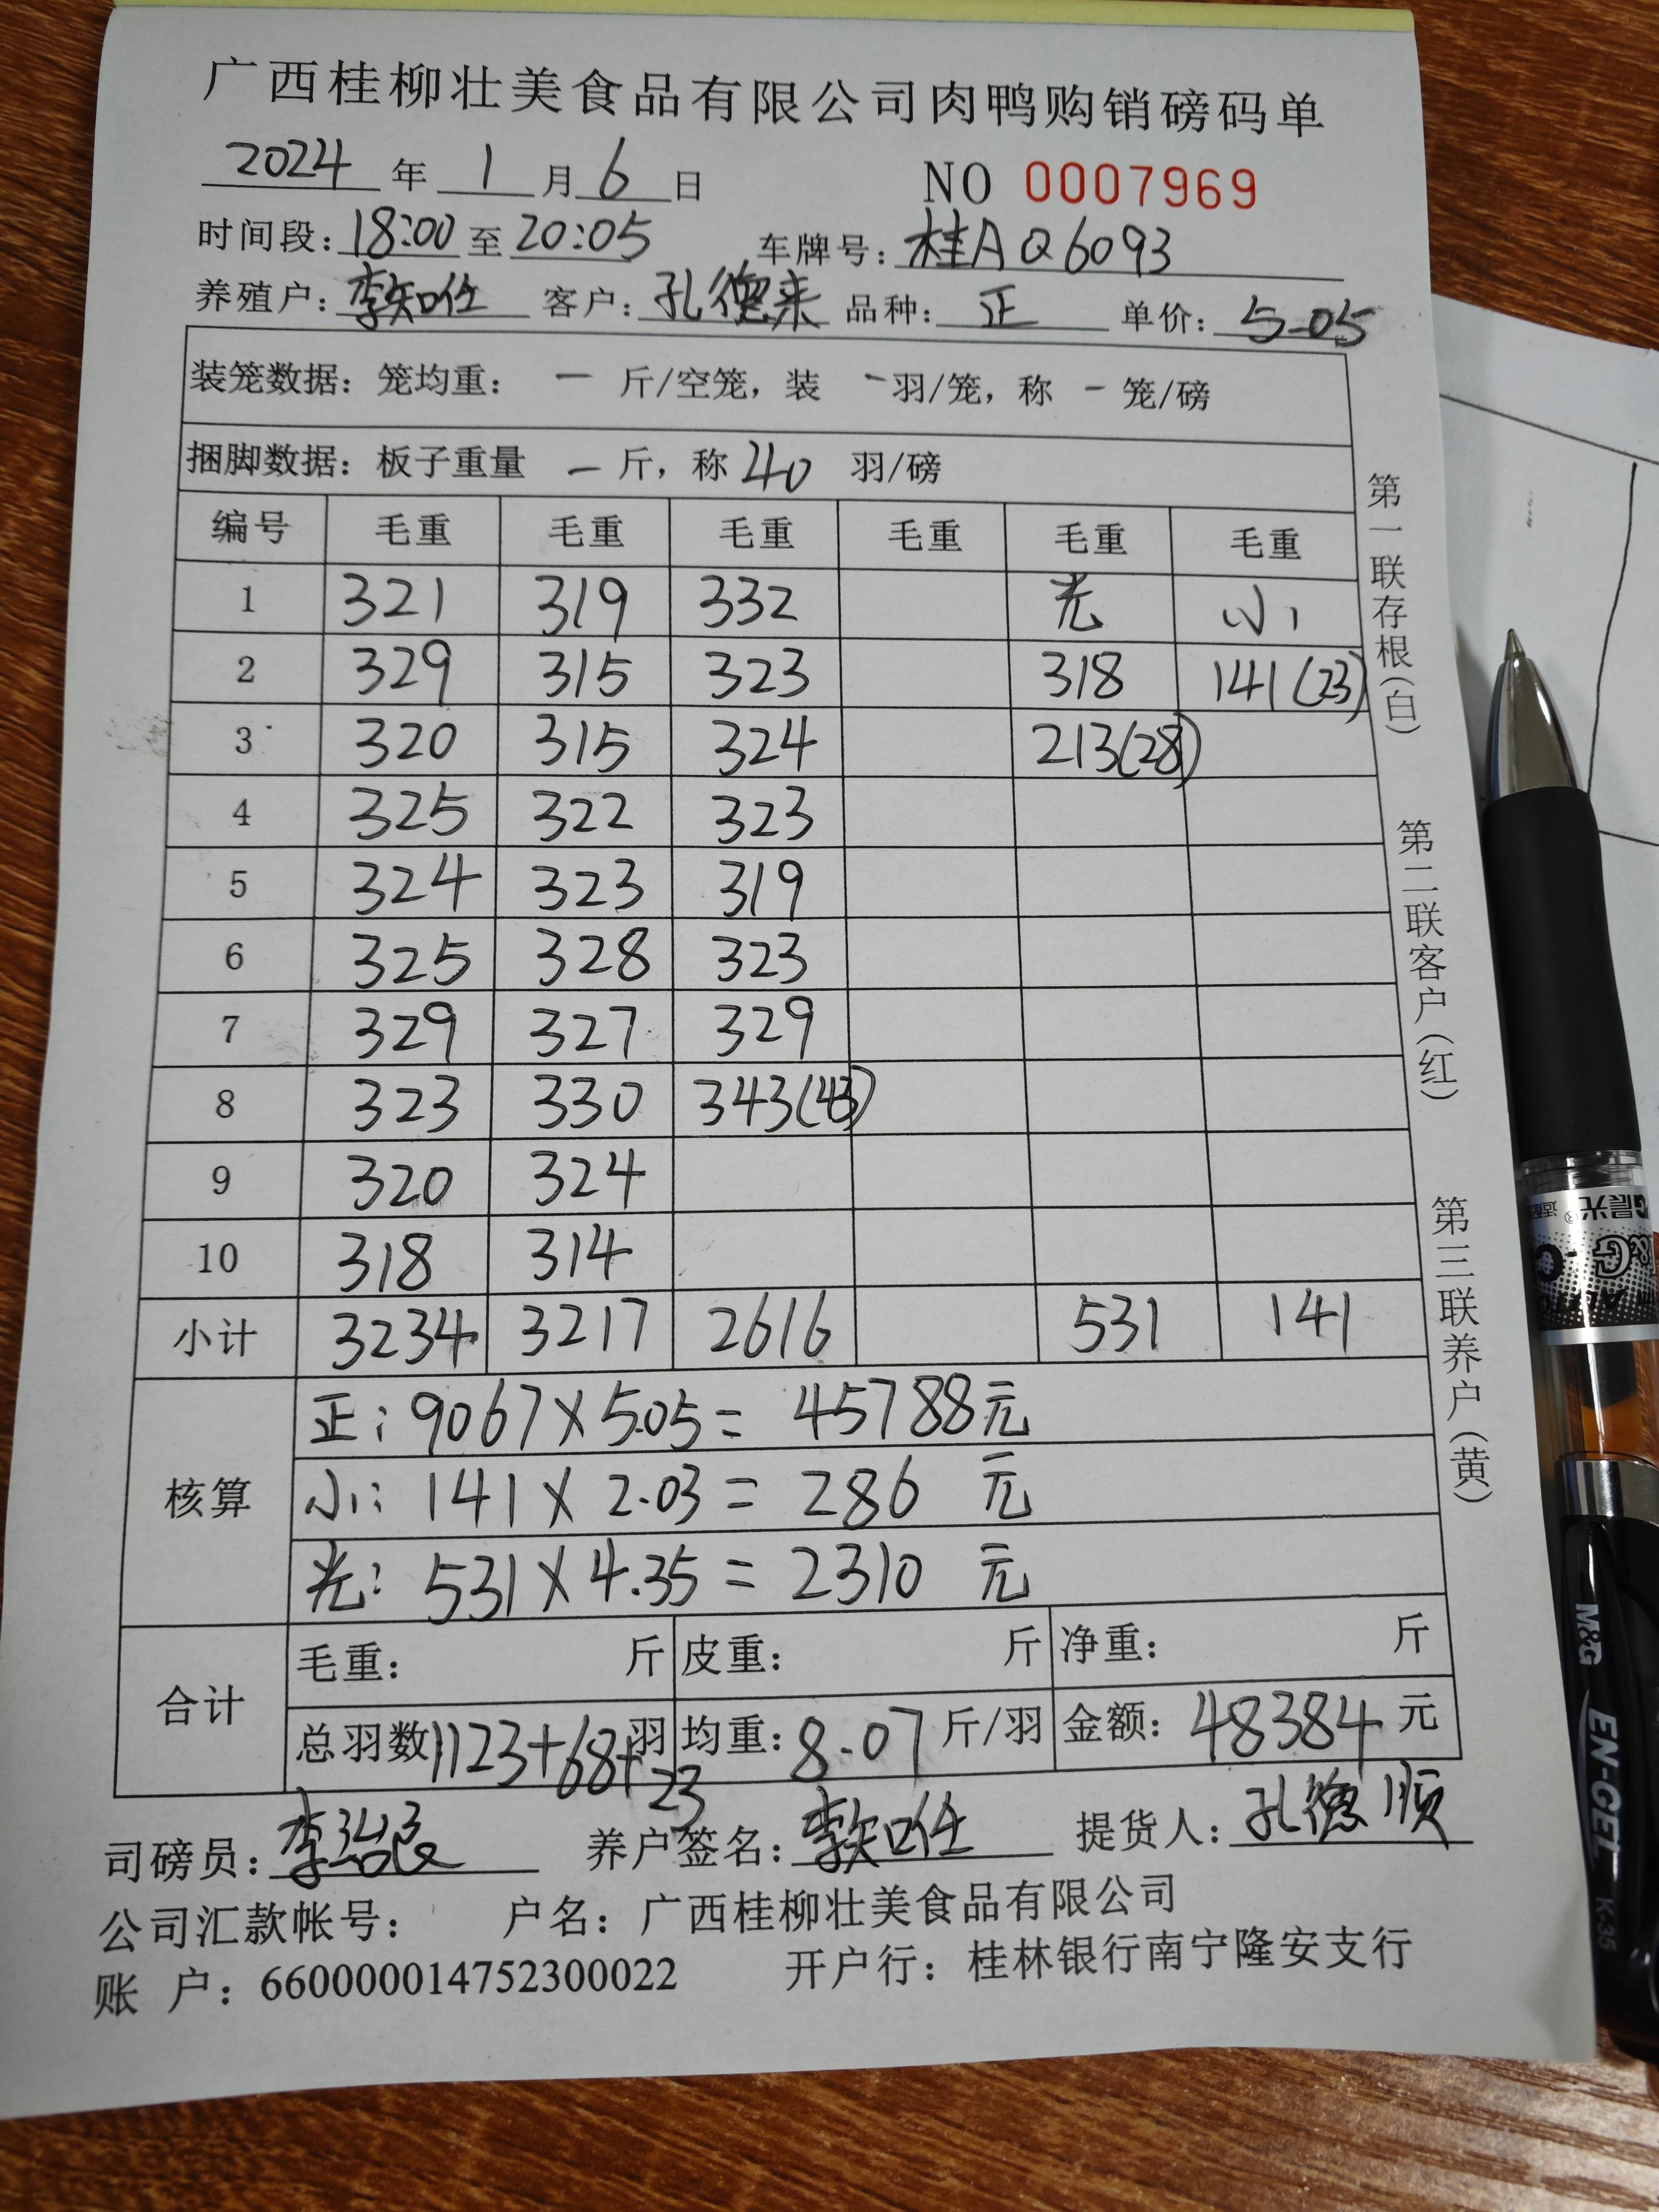 广西桂柳壮美食品有限公司肉鸭购销磅码单
2024 年 1 月 6 日 NO 0007969
时间段：18:00 至 20:05 车牌号：桂AQ6093
养殖户： 客户：孔德来 品种：正 单价：5.05
装笼数据：笼均重： — 斤/空笼，装 — 羽/笼，称 — 笼/磅
捆脚数据：板子重量 — 斤，称 40 羽/磅
编号 毛重 毛重 毛重 毛重 毛重 毛重
1 321 319 332 光 小
2 329 315 323 318 141(23)
3 320 315 324 213(28)
4 325 322 323
5 324 323 319
6 325 328 323
7 329 327 329
8 323 330 343(43)
9 320 324
10 318 314
小计 3234 3217 2616 531 141
核算
正：9067×5.05= 45788元
小：141×2.03= 286 元
光：531×4.35= 2310 元
合计
毛重： 斤 皮重： 斤 净重： 斤
总羽数 1123+68+23 羽 均重：8.07 斤/羽 金额：48384 元
司磅员：李治良 养户签名： 提货人：孔德顺
公司汇款帐号： 户名：广西桂柳壮美食品有限公司
账 户：660000014752300022 开户行：桂林银行南宁隆安支行
第一联存根(白)
第二联客户(红)
第三联养户(黄)
M&G EN-GEL K-35
晨光